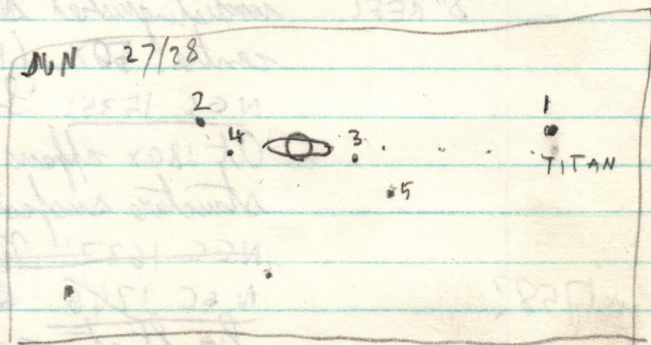 JUN 27/28
2
1
4
3
TITAN
5